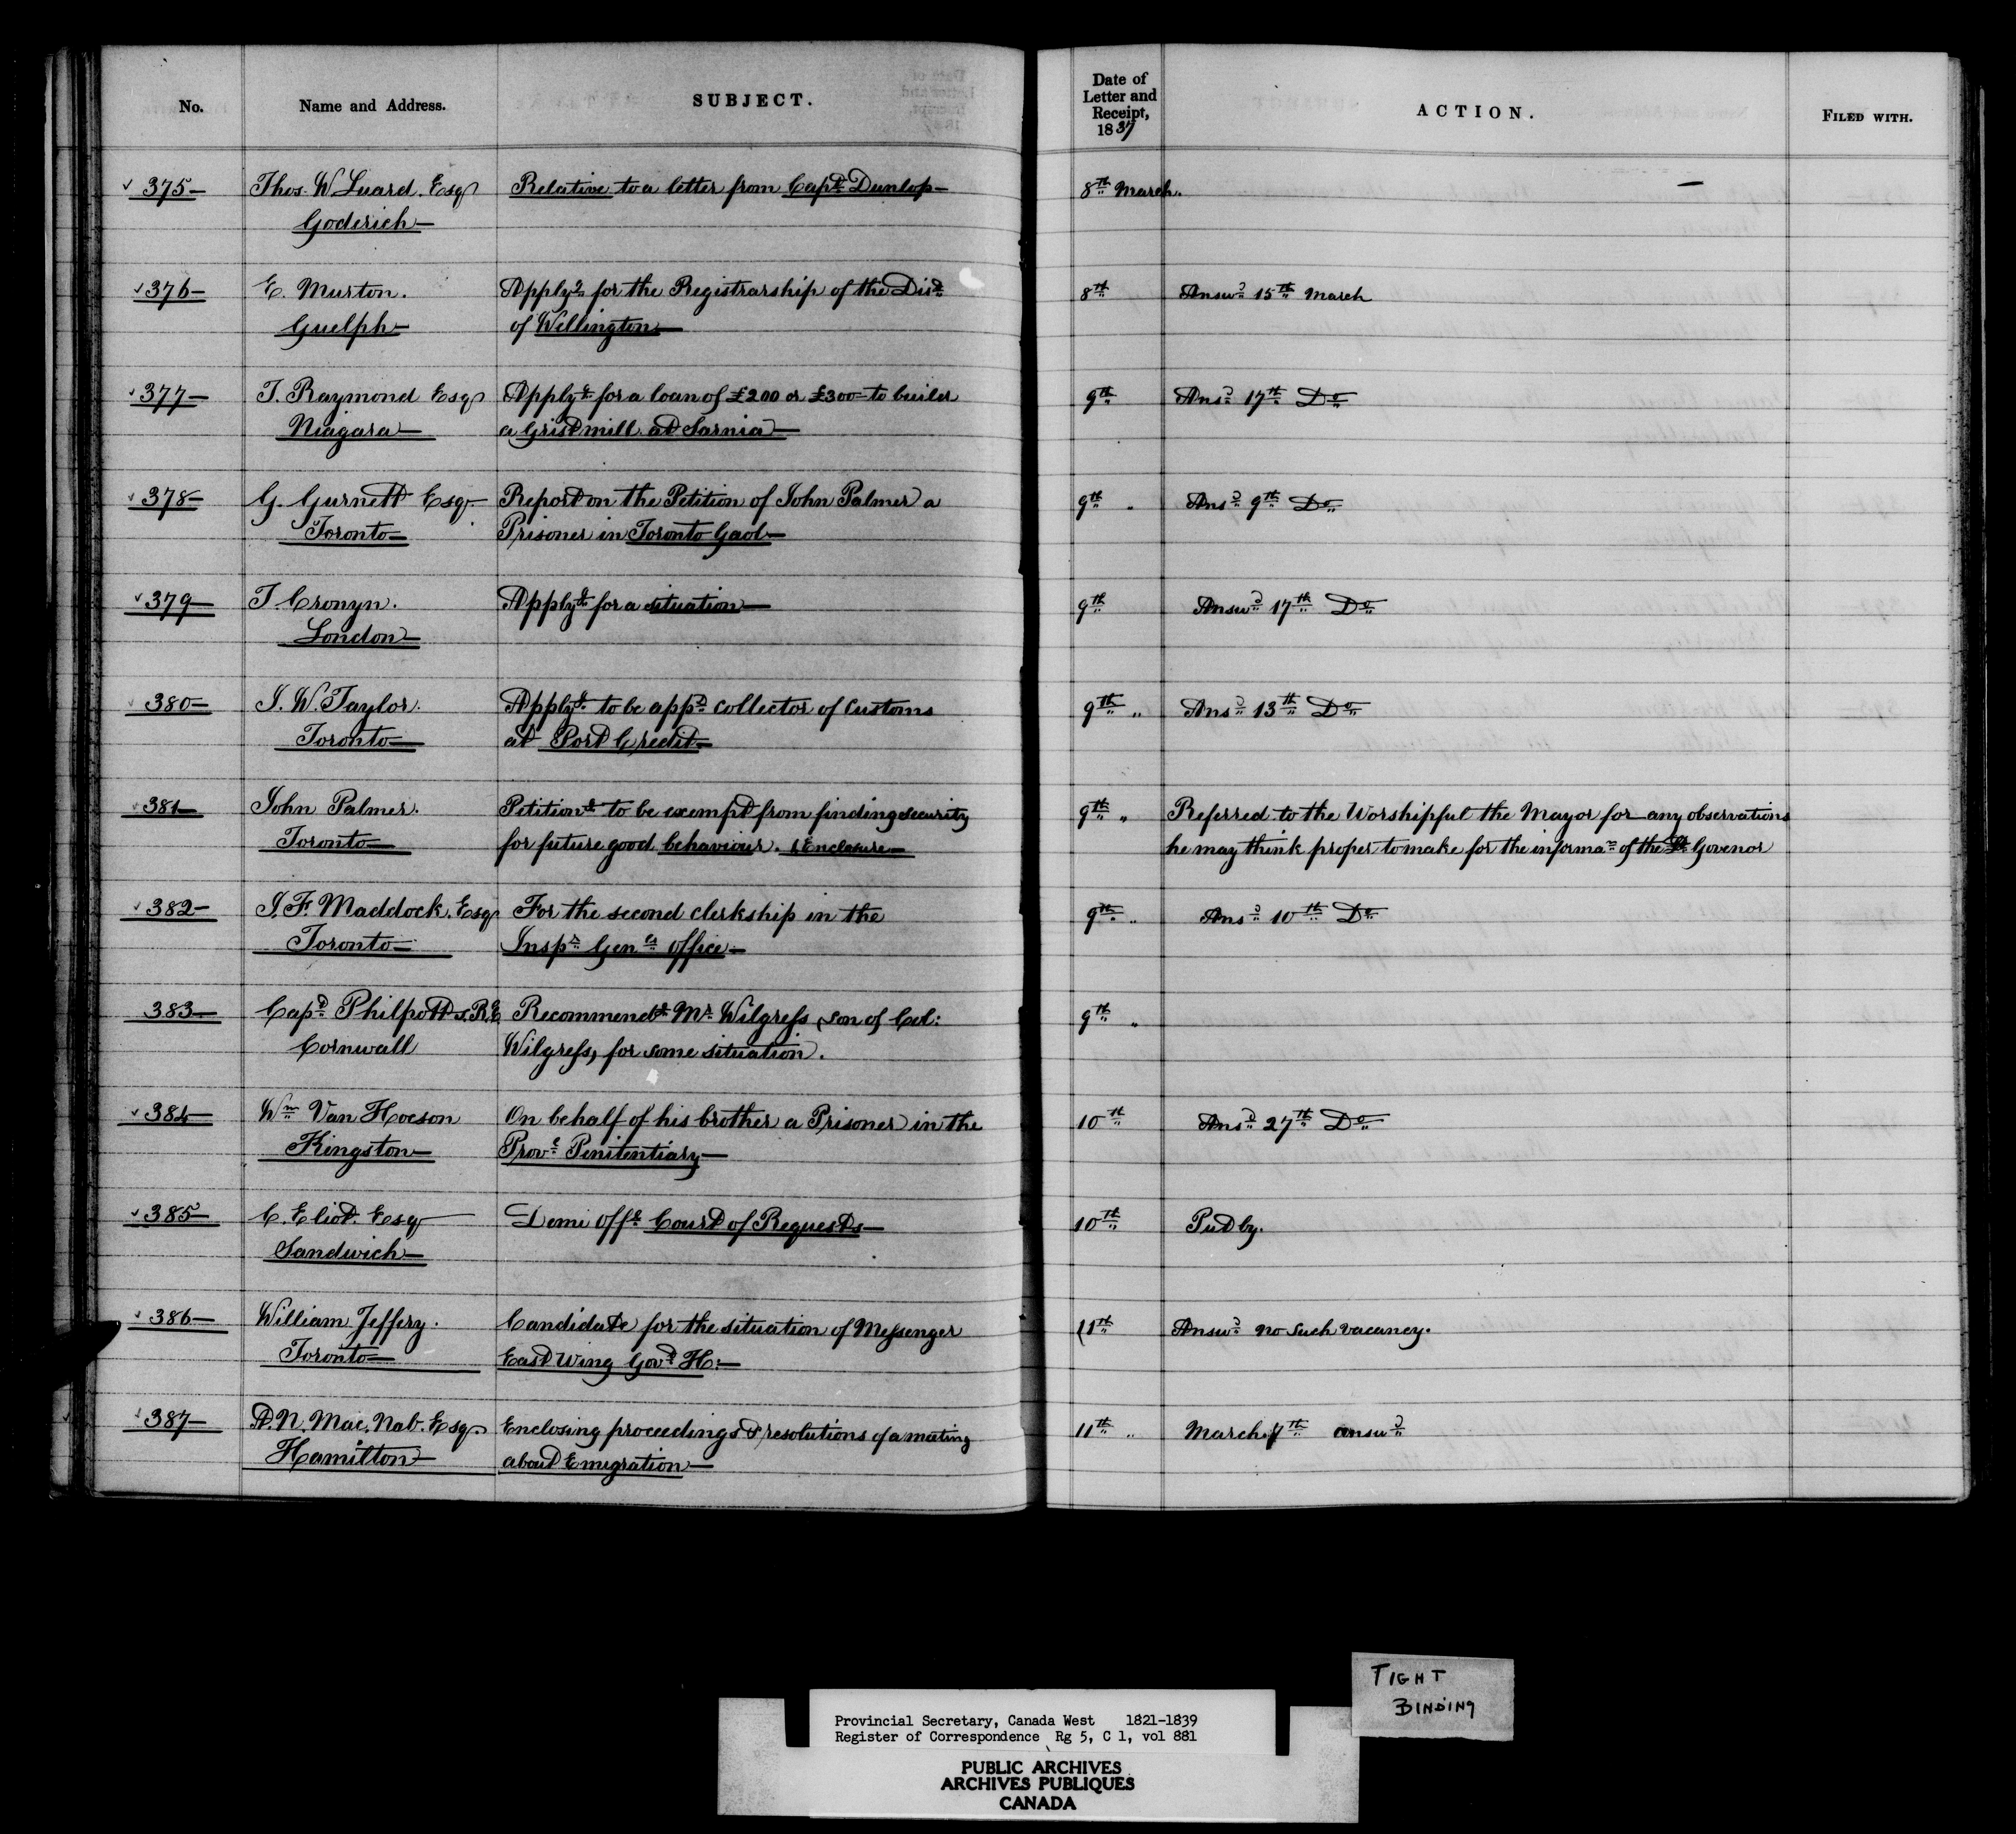 No. Name and Address. SUBJECT. Date of Letter and Receipt, 1837 ACTION. FILED WITH.
375 Thos. W Luard. Esqr Relative to a letter from Capt. Dunlop 8th March. —
Goderich
376 E. Murton. Applyg for the Registrarship of the Dist 8th Answd 15th March
Guelph of Wellington
377 T. Raymond Esqr Applyg for a loan of £200 or £300 to build 9th Ansd 17th Do
Niagara a Grist mill at Sarnia
378 G. Gurnett Esqr Report on the Petition of John Palmer a 9th Ansd 9th Do
Toronto Prisoner in Toronto Gaol
379 T Cronyn. Applyg for a situation 9th Answd 17th Do
London
380 J. W. Taylor. Applyg to be appd collector of customs 9th " Ansd 13th Do
Toronto at Port Credit
381 John Palmer. Petitiong to be exempt from finding security 9th " Referred to the Worshipful the Mayor for any observations
Toronto for future good behaviour. & Enclosure he may think proper to make for the informan of the Lt Govenor
382 J. F. Maddock. Esqr For the second clerkship in the 9th " Ansd 10th Do
Toronto Inspr Genls Office
383 Capt Philpotts. R.E. Recommendg Mr Wilgress, son of Col: 9th "
Cornwall Wilgress, for some situation.
384 Wm Van Hoeson On behalf of his brother a Prisoner in the 10th Ansd 27th Do
Kingston Provl Penitentiary
385 C. Eliot. Esqr Demi offl Court of Requests 10th Put by.
Sandwich
386 William Jeffery. Candidate for the situation of Messenger 11th Answd no such vacancy.
Toronto East Wing Govt H:
387 A. N. Mac. Nab. Esqr. Enclosing proceedings & resolutions of a meeting 11th " March 17th answd
Hamilton about Emigration
TIGHT
BINDING
Provincial Secretary, Canada West 1821-1839
Register of Correspondence Rg 5, C 1, vol 881
PUBLIC ARCHIVES
ARCHIVES PUBLIQUES
CANADA